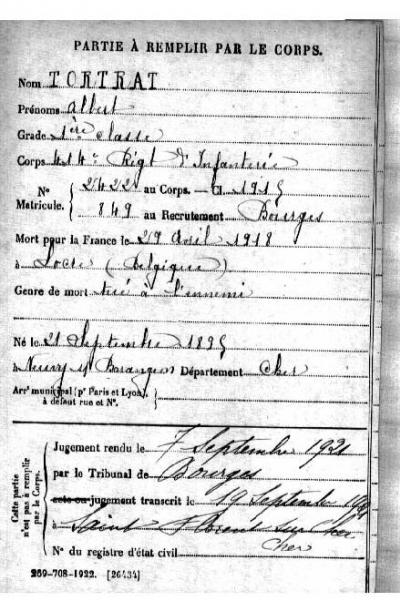 PARTIE À REMPLIR PAR LE CORPS.
Nom TORTRAT
Prénoms Albert
Grade 1ère classe
Corps 414e Régt d'Infanterie
N° Matricule. { 2422 au Corps. — Cl. 1915
849 au Recrutement Bourges
Mort pour la France le 29 Avril 1918
à Locre (Belgique)
Genre de mort tué à l'ennemi
Né le 21 Septembre 1895
à Neuvy s/ Barangeon Département Cher
Arrt municipal (pr Paris et Lyon),
à défaut rue et N°.
Cette partie n'est pas à remplir par le Corps.
Jugement rendu le 7 Septembre 1921
par le Tribunal de Bourges
acte ou jugement transcrit le 19 Septembre 1921
à Saint Florent sur Cher
Cher
N° du registre d'état civil
269-708-1922. [26434]